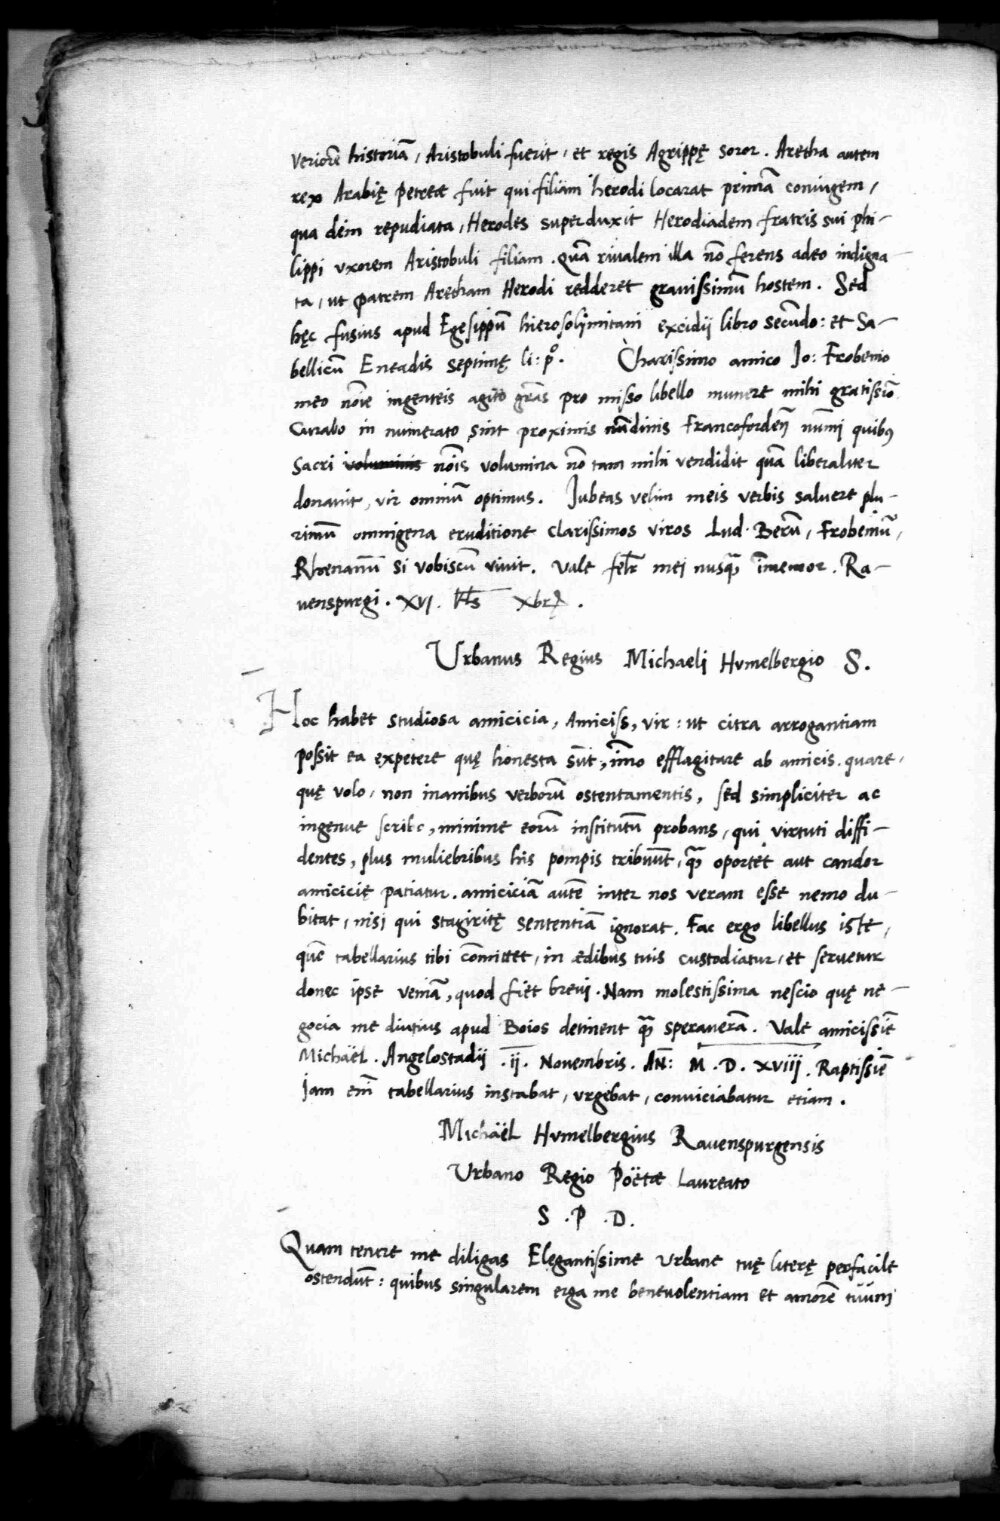 veriorē historiā, Aristobuli fuerit, et regis Agrippę soror. Aretha autem
rex Arabię petreæ fuit qui filiam herodi locarat primā coniugem,
qua dein repudiata, Herodes superduxit Herodiadem fratris sui phi-
lippi vxorem Aristobuli filiam. quā riualem illa nō ferens adeo indigna-
ta, ut patrem Aretham Herodi redderet grauissimū hostem. Sed
hęc fusius apud Egesippū hierosolimitani excidij libro secundo: et Sa-
bellicū Eneadis septimę li: pº. Charissimo amico Jo: Frobenio
meo nōīe ingenteis agito grās pro misso libello munere mihi gratissiō
Curabo in numerato sint proximis nūdinis Francoforden̄ nūmi quibus
sacri voluminis nōīs volumina nō tam mihi vendidit quā liberaliter
donauit, vir omniū optimus. Jubeas velim meis verbis saluere plu-
rimū omnigena eruditione clarissimos viros Lud. Berū, Frobeniū,
Rhenanū si vobiscū viuit. Vale fel̄r mej nusq̄ īmemor. Ra-
uenspurgi. XVI. kl̄s Xbrꝭ.
Urbanus Regius Michaeli Hvmelbergio S.
Hoc habet studiosa amicicia, Amiciss, vir: ut citra arrogantiam
possit ea expetere quę honesta sūt, īmo efflagitare ab amicis. quare,
quę volo, non inanibus verborū ostentamentis, sed simpliciter ac
ingenue scribo, minime eorū institutū probans, qui virtuti diffi-
dentes, plus muliebribus his pompis tribuūt, q̄ oportet aut candor
amicicię patiatur. amiciciā autē inter nos veram esse nemo du-
bitat, nisi qui stagiritę sententiā ignorat. Fac ergo libellus iste,
quē tabellarius tibi cōmittet, in ædibus tuis custodiatur, et seruetur
donec ipse veniā, quod fiet breui. Nam molestissima nescio quę ne-
gocia me diutius apud Boios detinent q̄ sperauerā. Vale amicissīe
Michaël. Angelostadij .ij. Nouembris. AN̄: M.D.XVIII. Raptissīe
Jam em̄ tabellarius instabat, vrgebat, conuiciabatur etiam.
Michaël Hvmelbergius Rauenspurgensis
Urbano Regio Poëtæ Laureato
S .P .D.
Quam tenere me diligas Elegantissime Urbane tuę literę perfacile
ostendūt: quibus singularem erga me beneuolentiam et amorē tuum